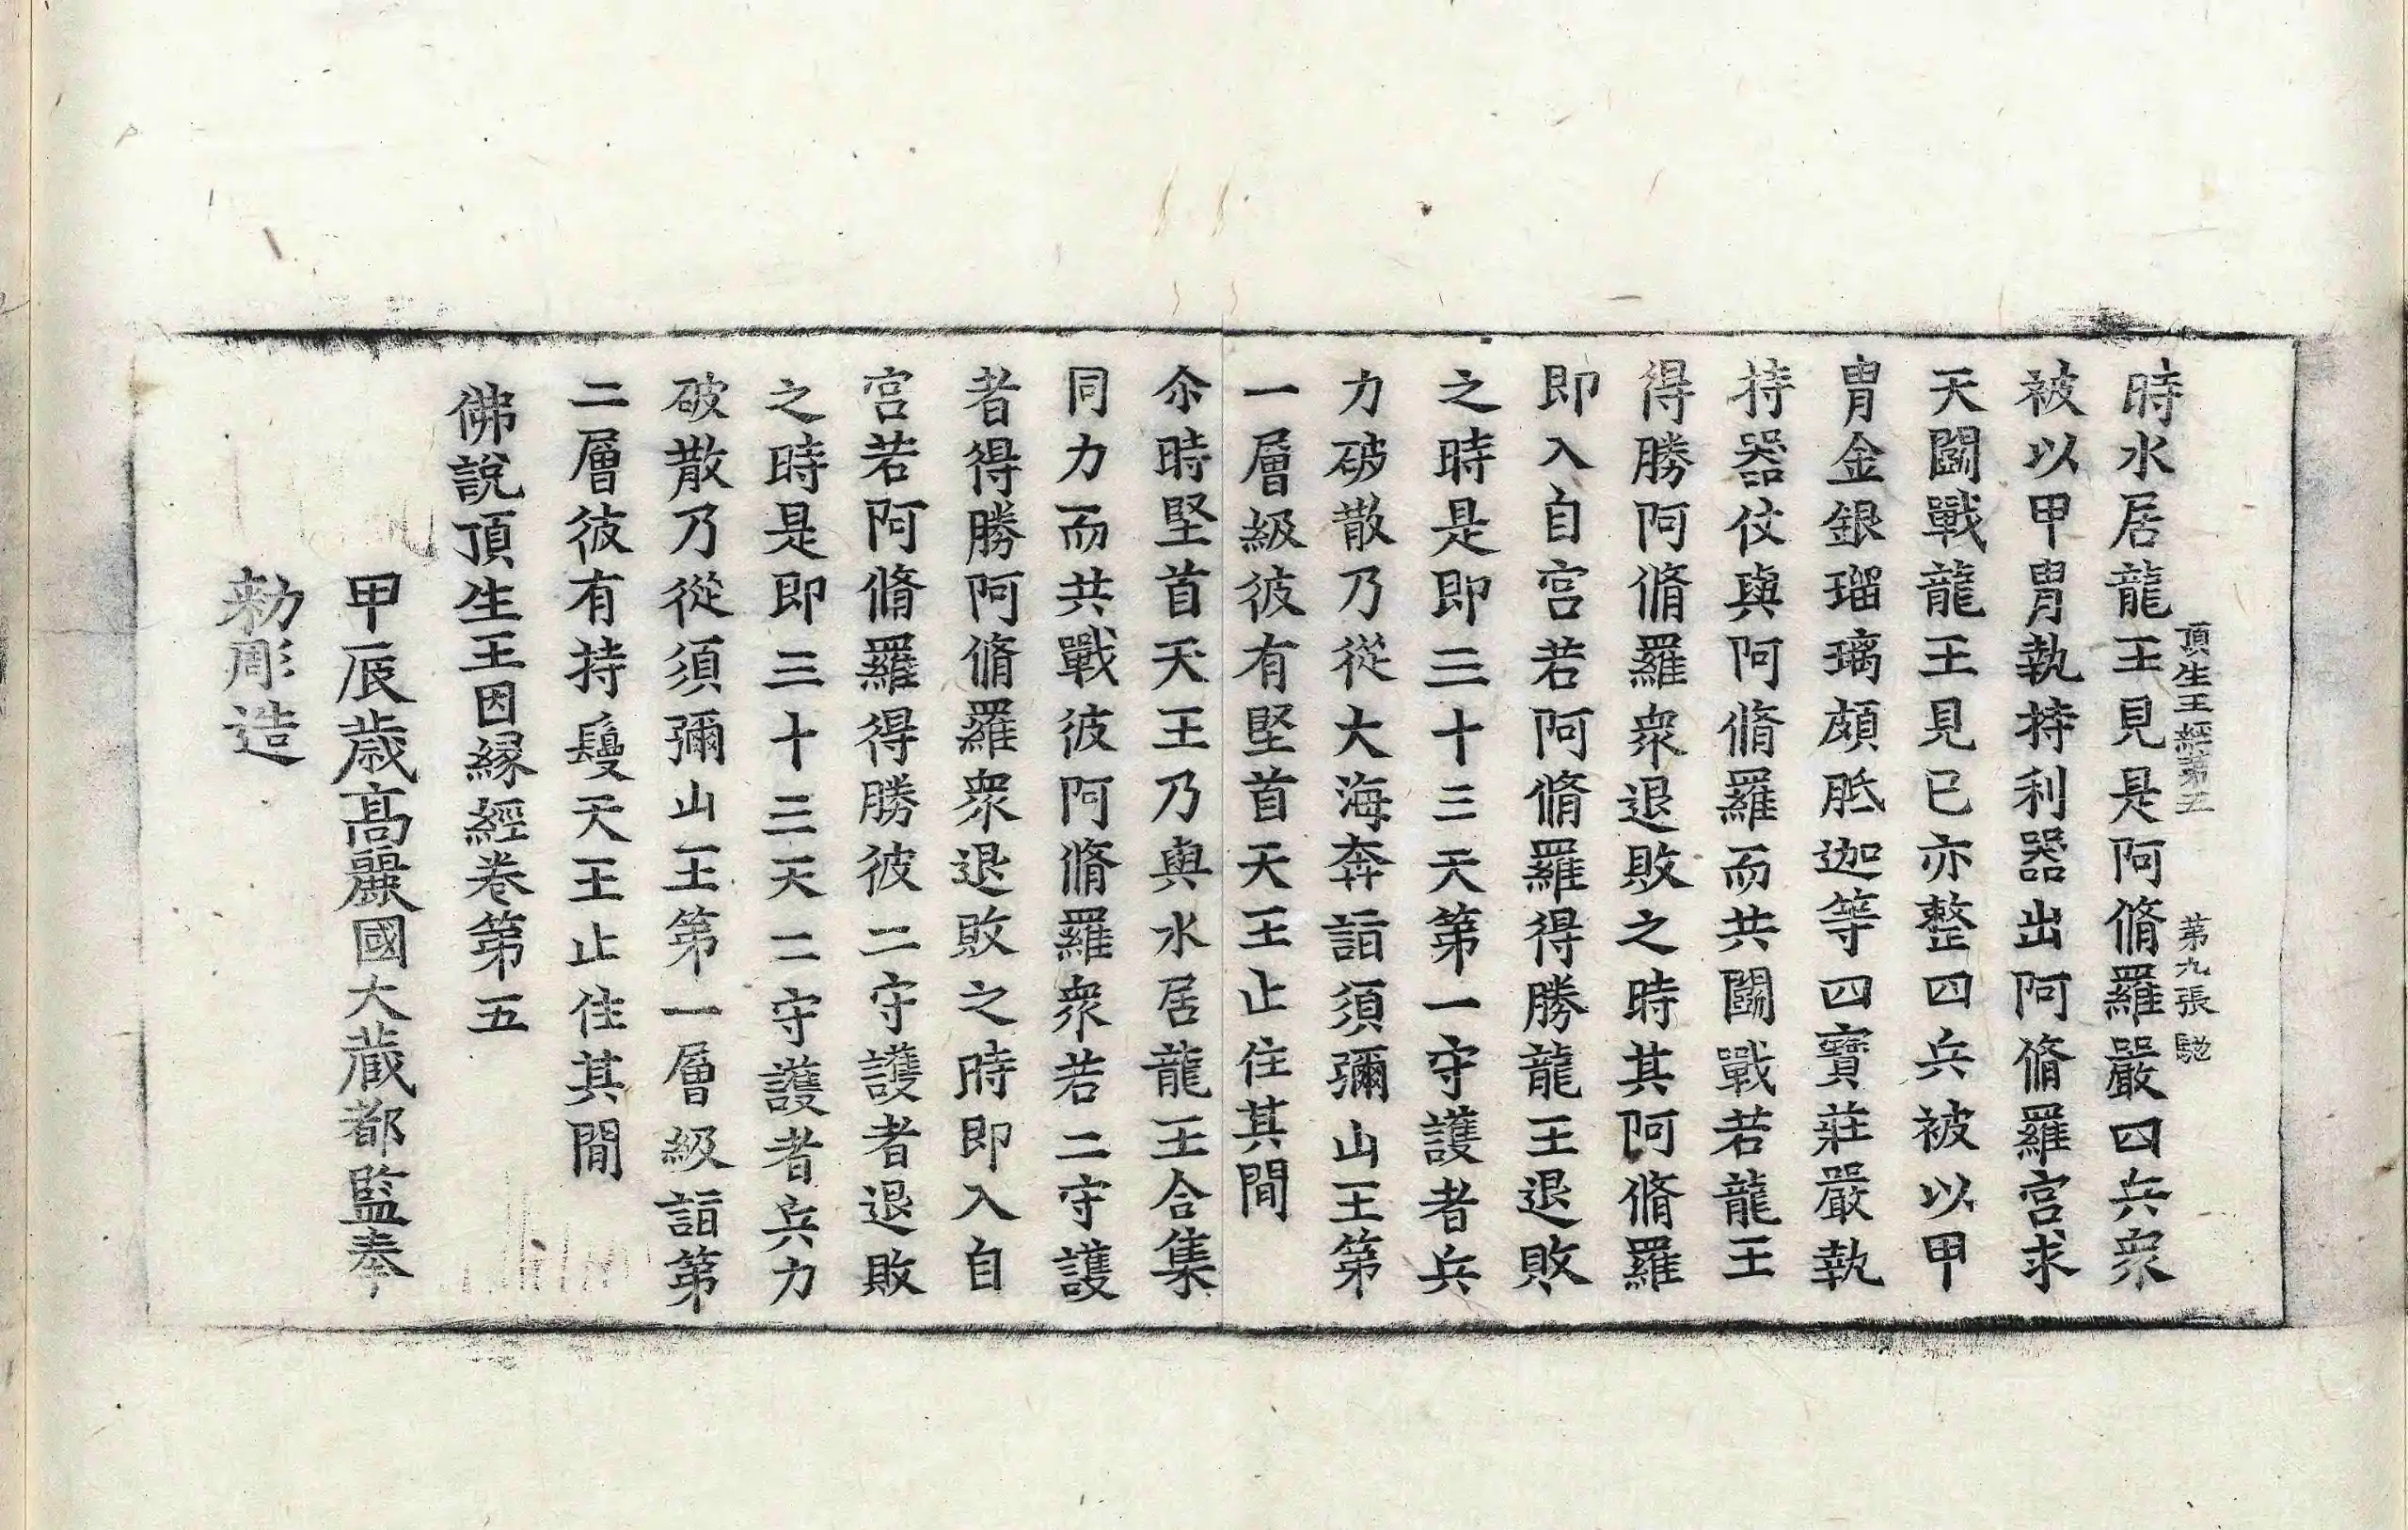 頂生王經第五　第九張　馳
時水居龍王見是阿脩羅嚴四兵衆
被以甲冑執持利器出阿脩羅宮求
天鬪戰龍王見已亦整四兵被以甲
冑金銀瑠璃頗胝迦等四寶莊嚴執
持器仗與阿脩羅而共鬪戰若龍王
得勝阿脩羅衆退敗之時其阿脩羅
即入自宮若阿脩羅得勝龍王退敗
之時是即三十三天第一守護者兵
力破散乃從大海奔詣須彌山王第
一層級彼有堅首天王止住其閒
尒時堅首天王乃與水居龍王合集
同力而共戰彼阿脩羅衆若二守護
者得勝阿脩羅衆退敗之時即入自
宮若阿脩羅得勝彼二守護者退敗
之時是即三十三天二守護者兵力
破散乃從須彌山王第一層級詣第
二層彼有持鬘天王止住其閒
佛說頂生王因緣經卷第五
甲辰歳高麗國大藏都監奉
勑彫造